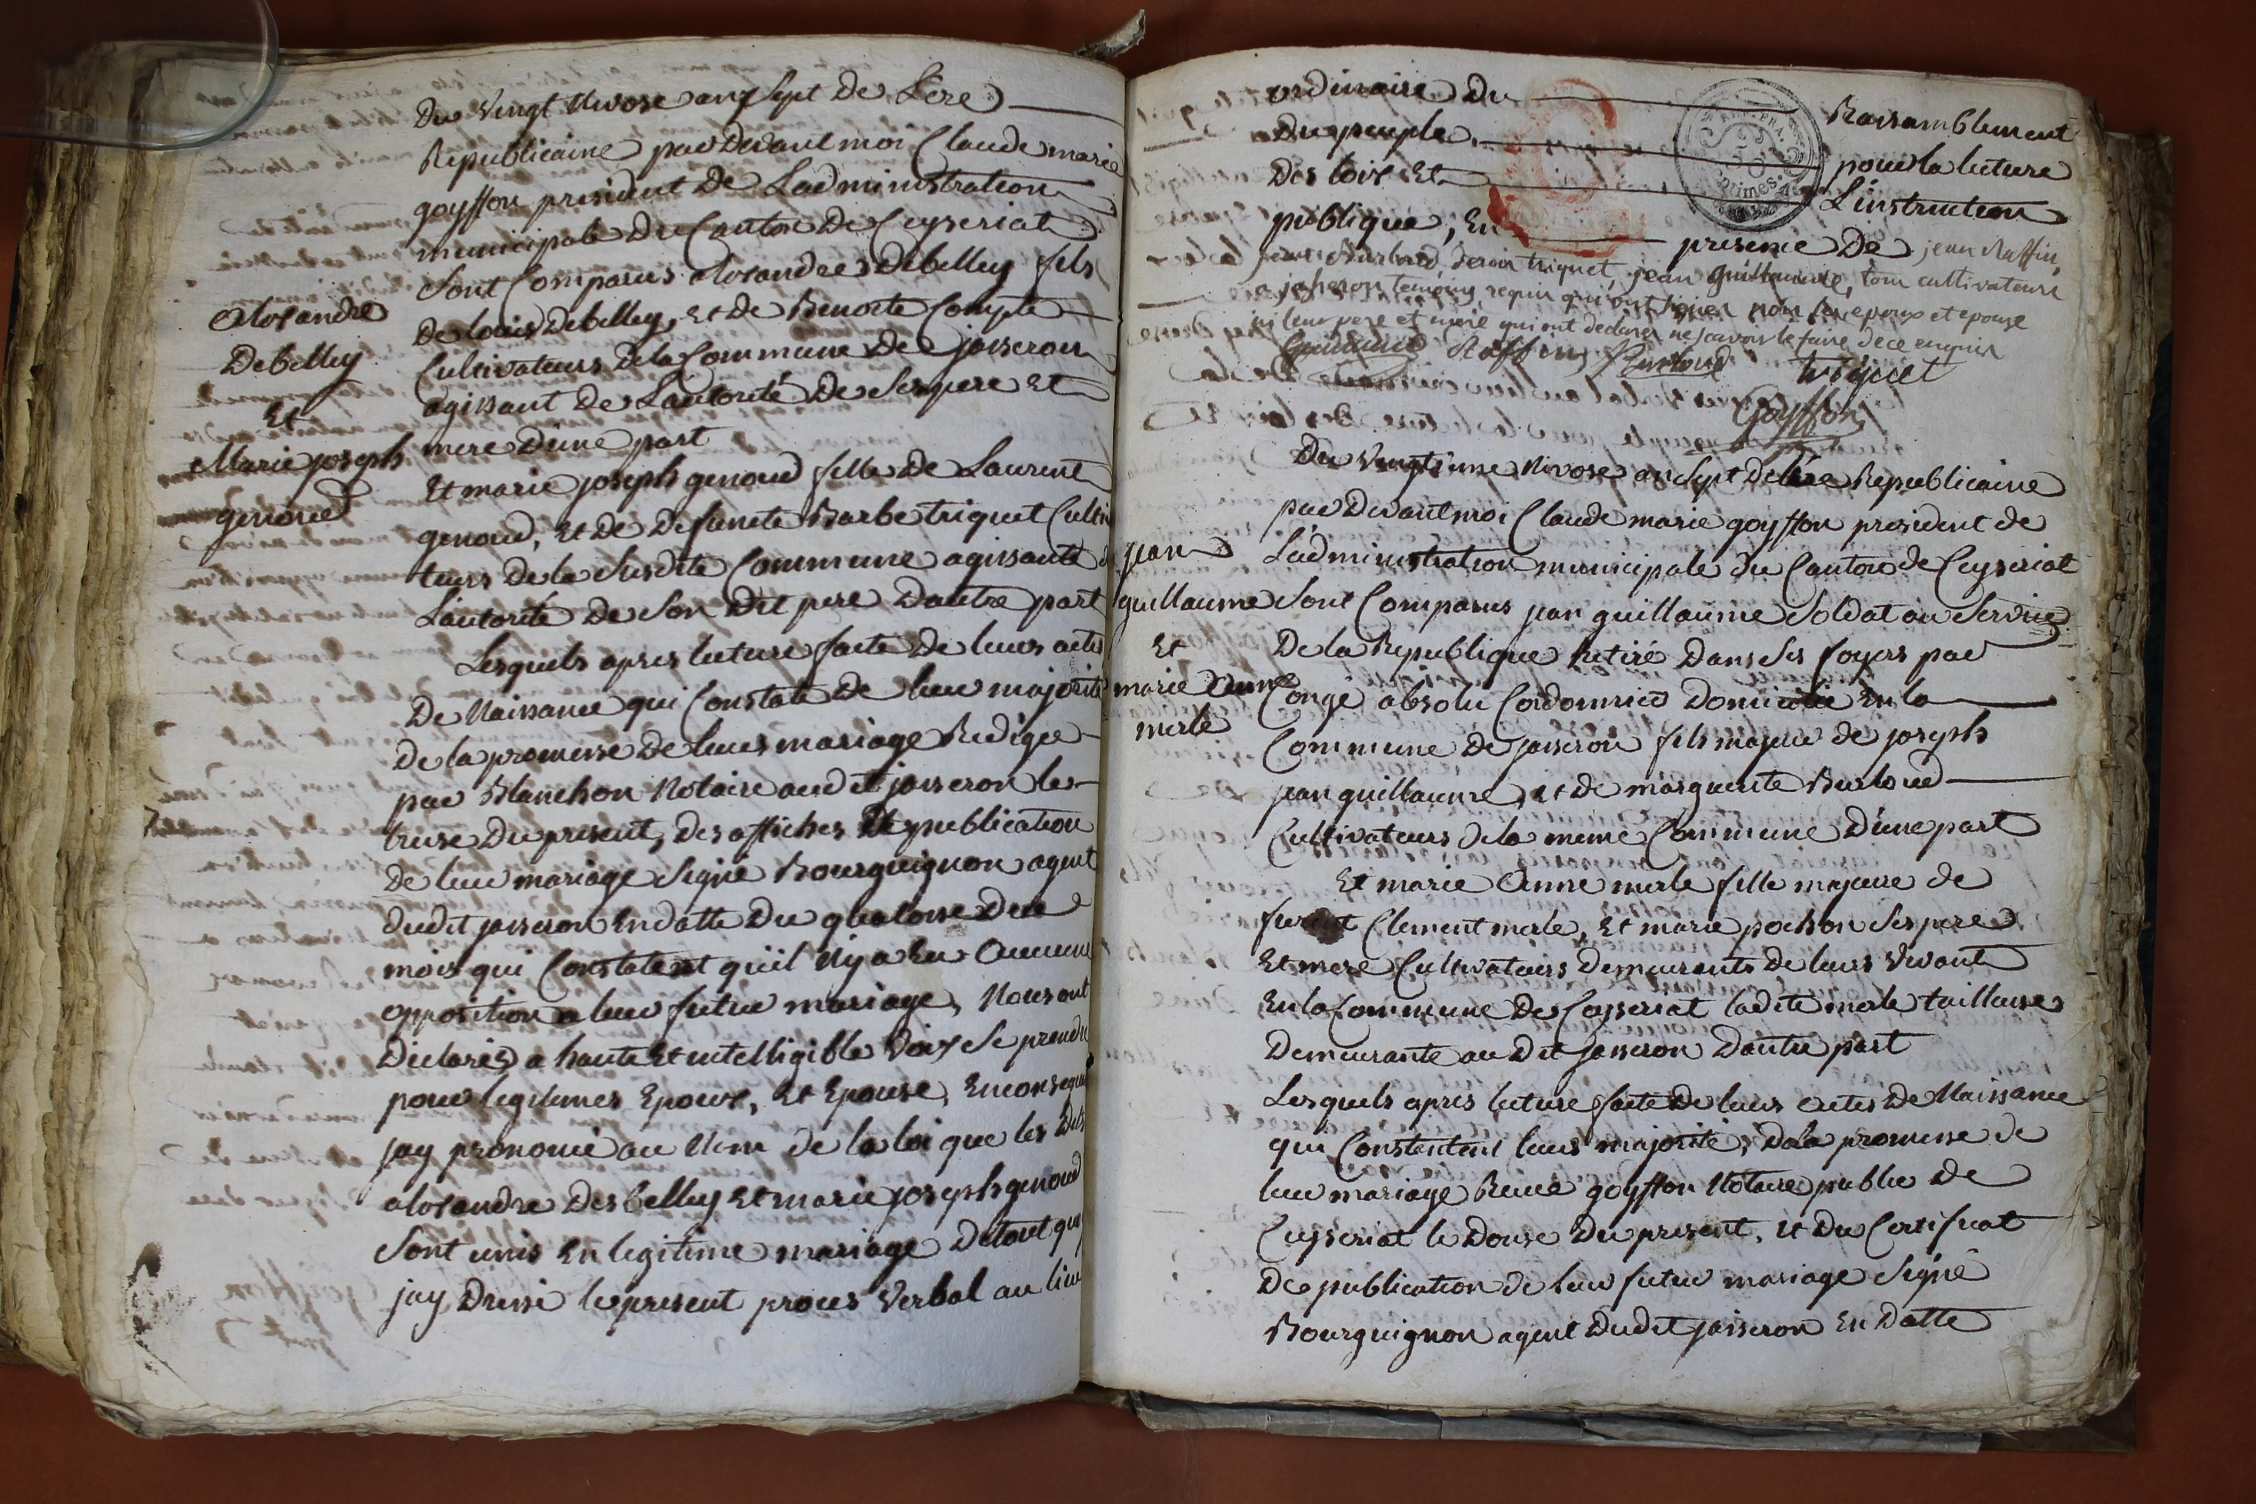 Du vingt Nivose an Sept De Lere
Republicaine par Devant moi Claude marie
goyffon president De Ladministration
municipale Du Canton De Ceyseriat
Sont Comparus alexandre Debelley fils
De louis Debelley, et de Benoite Compte
Cultivateurs de la Commune De jasseron
agissant De Lautorité De Ses pere Et
mere Dune part
Et marie joseph genoud fille De Laurent
genoud, Et De Defuncte Barbe triquet Culti
teurs De la Susdite Commune agissante
Lautorité De Son Dit pere Dautre part
Lesquels apres lecture faite De leurs actes
De Naissance qui Constate De leur majorité
De la promesse De leurs mariage Redigée
par Blanchon Notaire audit jasseron le
treise Du present, Des affiches Et publication
De leur mariage Signé Bourguignon agent
dudit jasseron En datte Du quatorse Du
mois qui Constatent quil Ny a Eu Aucune
opposition a leur futur mariage, Nous ont
Declarés a haute Et intelligible Voix Se prendre
pour legitimes Epoux, Et Epouse, En conseque
jay prononcé au Nom de la loi que les Dits
alexandre Desbelley Et marie joseph genoud
Sont unis En legitime mariage De tout quoy
jay Dressé le present proces Verbal au lieu
alexandre
Debelley
Et
Marie joseph
genoud
ordinaire Du Rassamblement
Du peuple, pour la lecture
Des loix Et L'instruction
publique, En presence De jean Raffin,
Burloud, triquet, jean guillaume, tous cultivateurs
a jasseron temoins requis qui ont signé non les epoux et epouse
ni leur pere et mere qui ont declarer ne scavoir le faire de ce enquis
Guillaume Raffin Burloud triquet
Goyffon
Du Vingt une Nivose an Sept De lére Republicaine
par Devant moi Claude marie goyffon president de
Ladministration municipale du Canton de Ceyseriat
Sont Comparus jean guillaume Soldat au Service
De la Republique Retiré Dans Ses foyers par
Congé absolu Cordonnier Domicilié En la
Commune De jasseron fils majeur de joseph
jean guillaume, et de marguerite Burloud
Cultivateurs de la meme Commune Dune part
Et marie Anne merle fille majeure de
Clement merle, Et marie pochon Ses pere
Et mere Cultivateurs Demeurants De leurs Vivant
En la Commune De Ceyseriat ladite merle tailleuse
Demeurante au Dit jasseron Dautre part
Lesquels apres lecture faite De leurs actes De Naissance
qui Constentent leurs majorité, De la promesse de
leur mariage Recue goyffon Notaire public De
Ceyseriat le Douse Du present, et Du Certificat
De publication de leur futur mariage Signé
Bourguignon agent Dudit jasseron En Datte
jean
guillaume
Et
marie Anne
merle